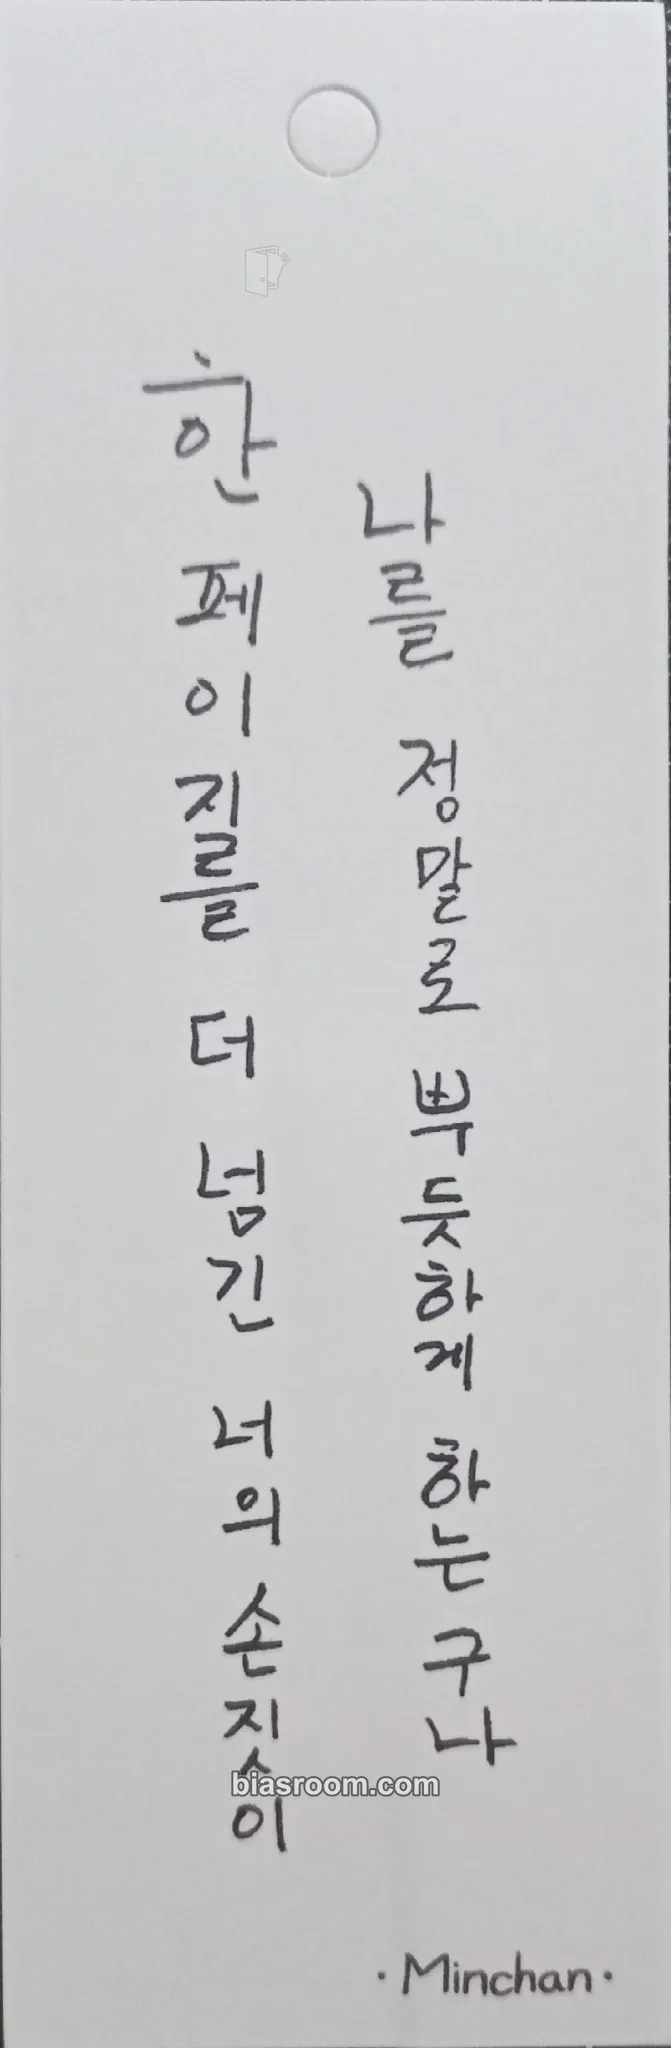 한 페이지를 더 넘긴 너의 손짓이
나를 정말로 뿌듯하게 하는구나
biasroom.com
· Minchan ·